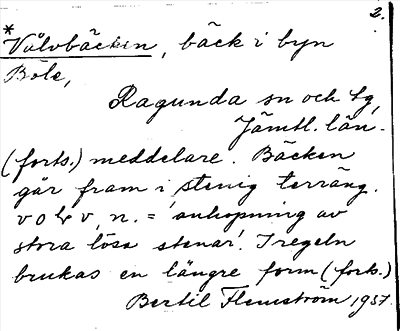 2.
*Vålvbäcken, bäck i byn
Böle,
Ragunda sn och tg,
Jämtl. län.
(forts.) meddelare. Bäcken
går fram i stenig terräng.
n. = 'anhopning av
stora lösa stenar'. I regeln
brukas en längre form (forts.)
Bertil Flemström 1937.